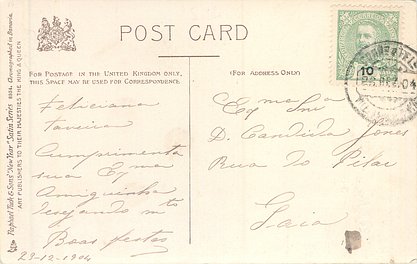 POST CARD
FOR POSTAGE IN THE UNITED KINGDOM ONLY,
THIS SPACE MAY BE USED FOR CORRESPONDENCE.
(FOR ADDRESS ONLY)
Raphael Tuck & Sons' "New Year" Series
Chromographed in Bavaria.
ART PUBLISHERS TO THEIR MAJESTIES THE KING & QUEEN
10
04
Feliciana
Taveira
Cumprimenta
sua
Amiguinha
desejando mto
Boas festas
29-12-1904
Exma Snr
D. Candida Gomes
Rua do Pilar
Gaia